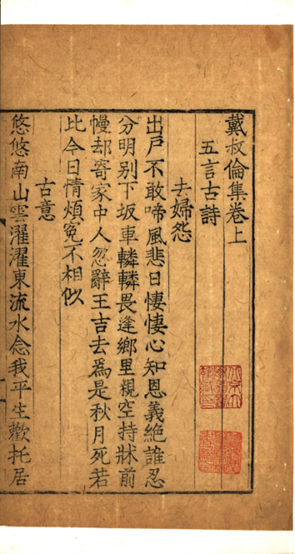 戴叔倫集卷上
五言古詩
去婦怨
出戶不敢啼風悲日悽悽心知恩義絕誰忍
分明别下坂車轔轔畏逢鄉里親空持牀前
幔却寄家中人忽辭王吉去爲是秋月死若
比今日情煩冤不相似
古意
悠悠南山雲濯濯東流水念我平生歡托居